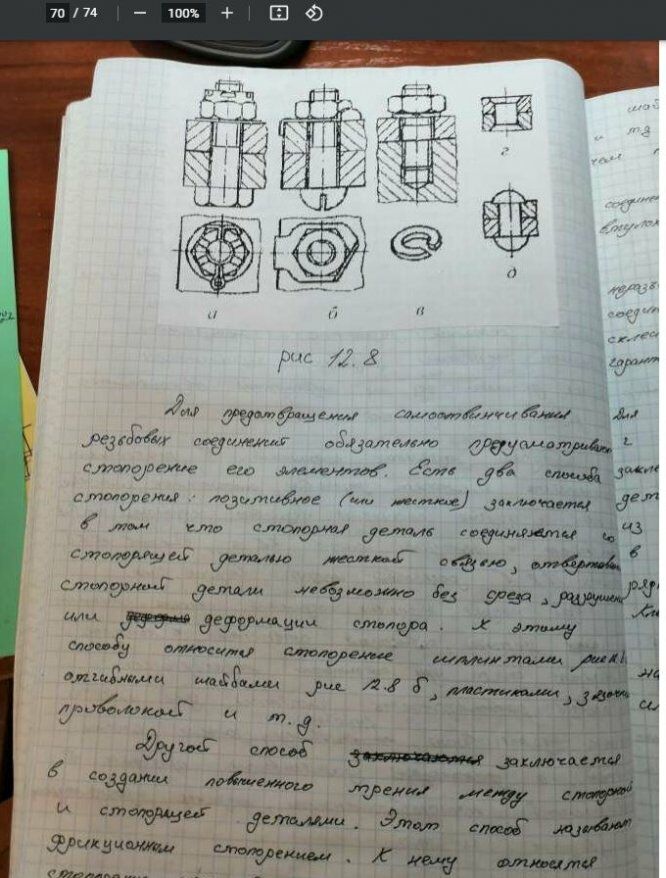 70 / 74
100%
а б в
г
д
рис 12.8
Для предотвращения самоотвинчивания
резьбовых соединений обязательно предусматривают
стопорение его элементов. Есть два способа
стопорения: позитивное (или жесткие) заключается
в том что стопорная деталь соединяются со
стопорящей деталью жесткой связью, отвертован
стопорной детали невозможно без среза, разрушени
или деформации стопора. К этому
способу относится стопорение шплинтами рис
отгибными шайбами рис 12.8 б, пластиками,
проволокой и т.д.
Другой способ заключается
в создании повышенного трения между стопорной
и стопорящей деталями. Этот способ называют
фрикционным стопорением. К нему относятся
шай
и т.д
чем
соедине
втулок
неразъ
соедин
склеи
гарант
Для
г
закле
дет
из
в
ряд
на